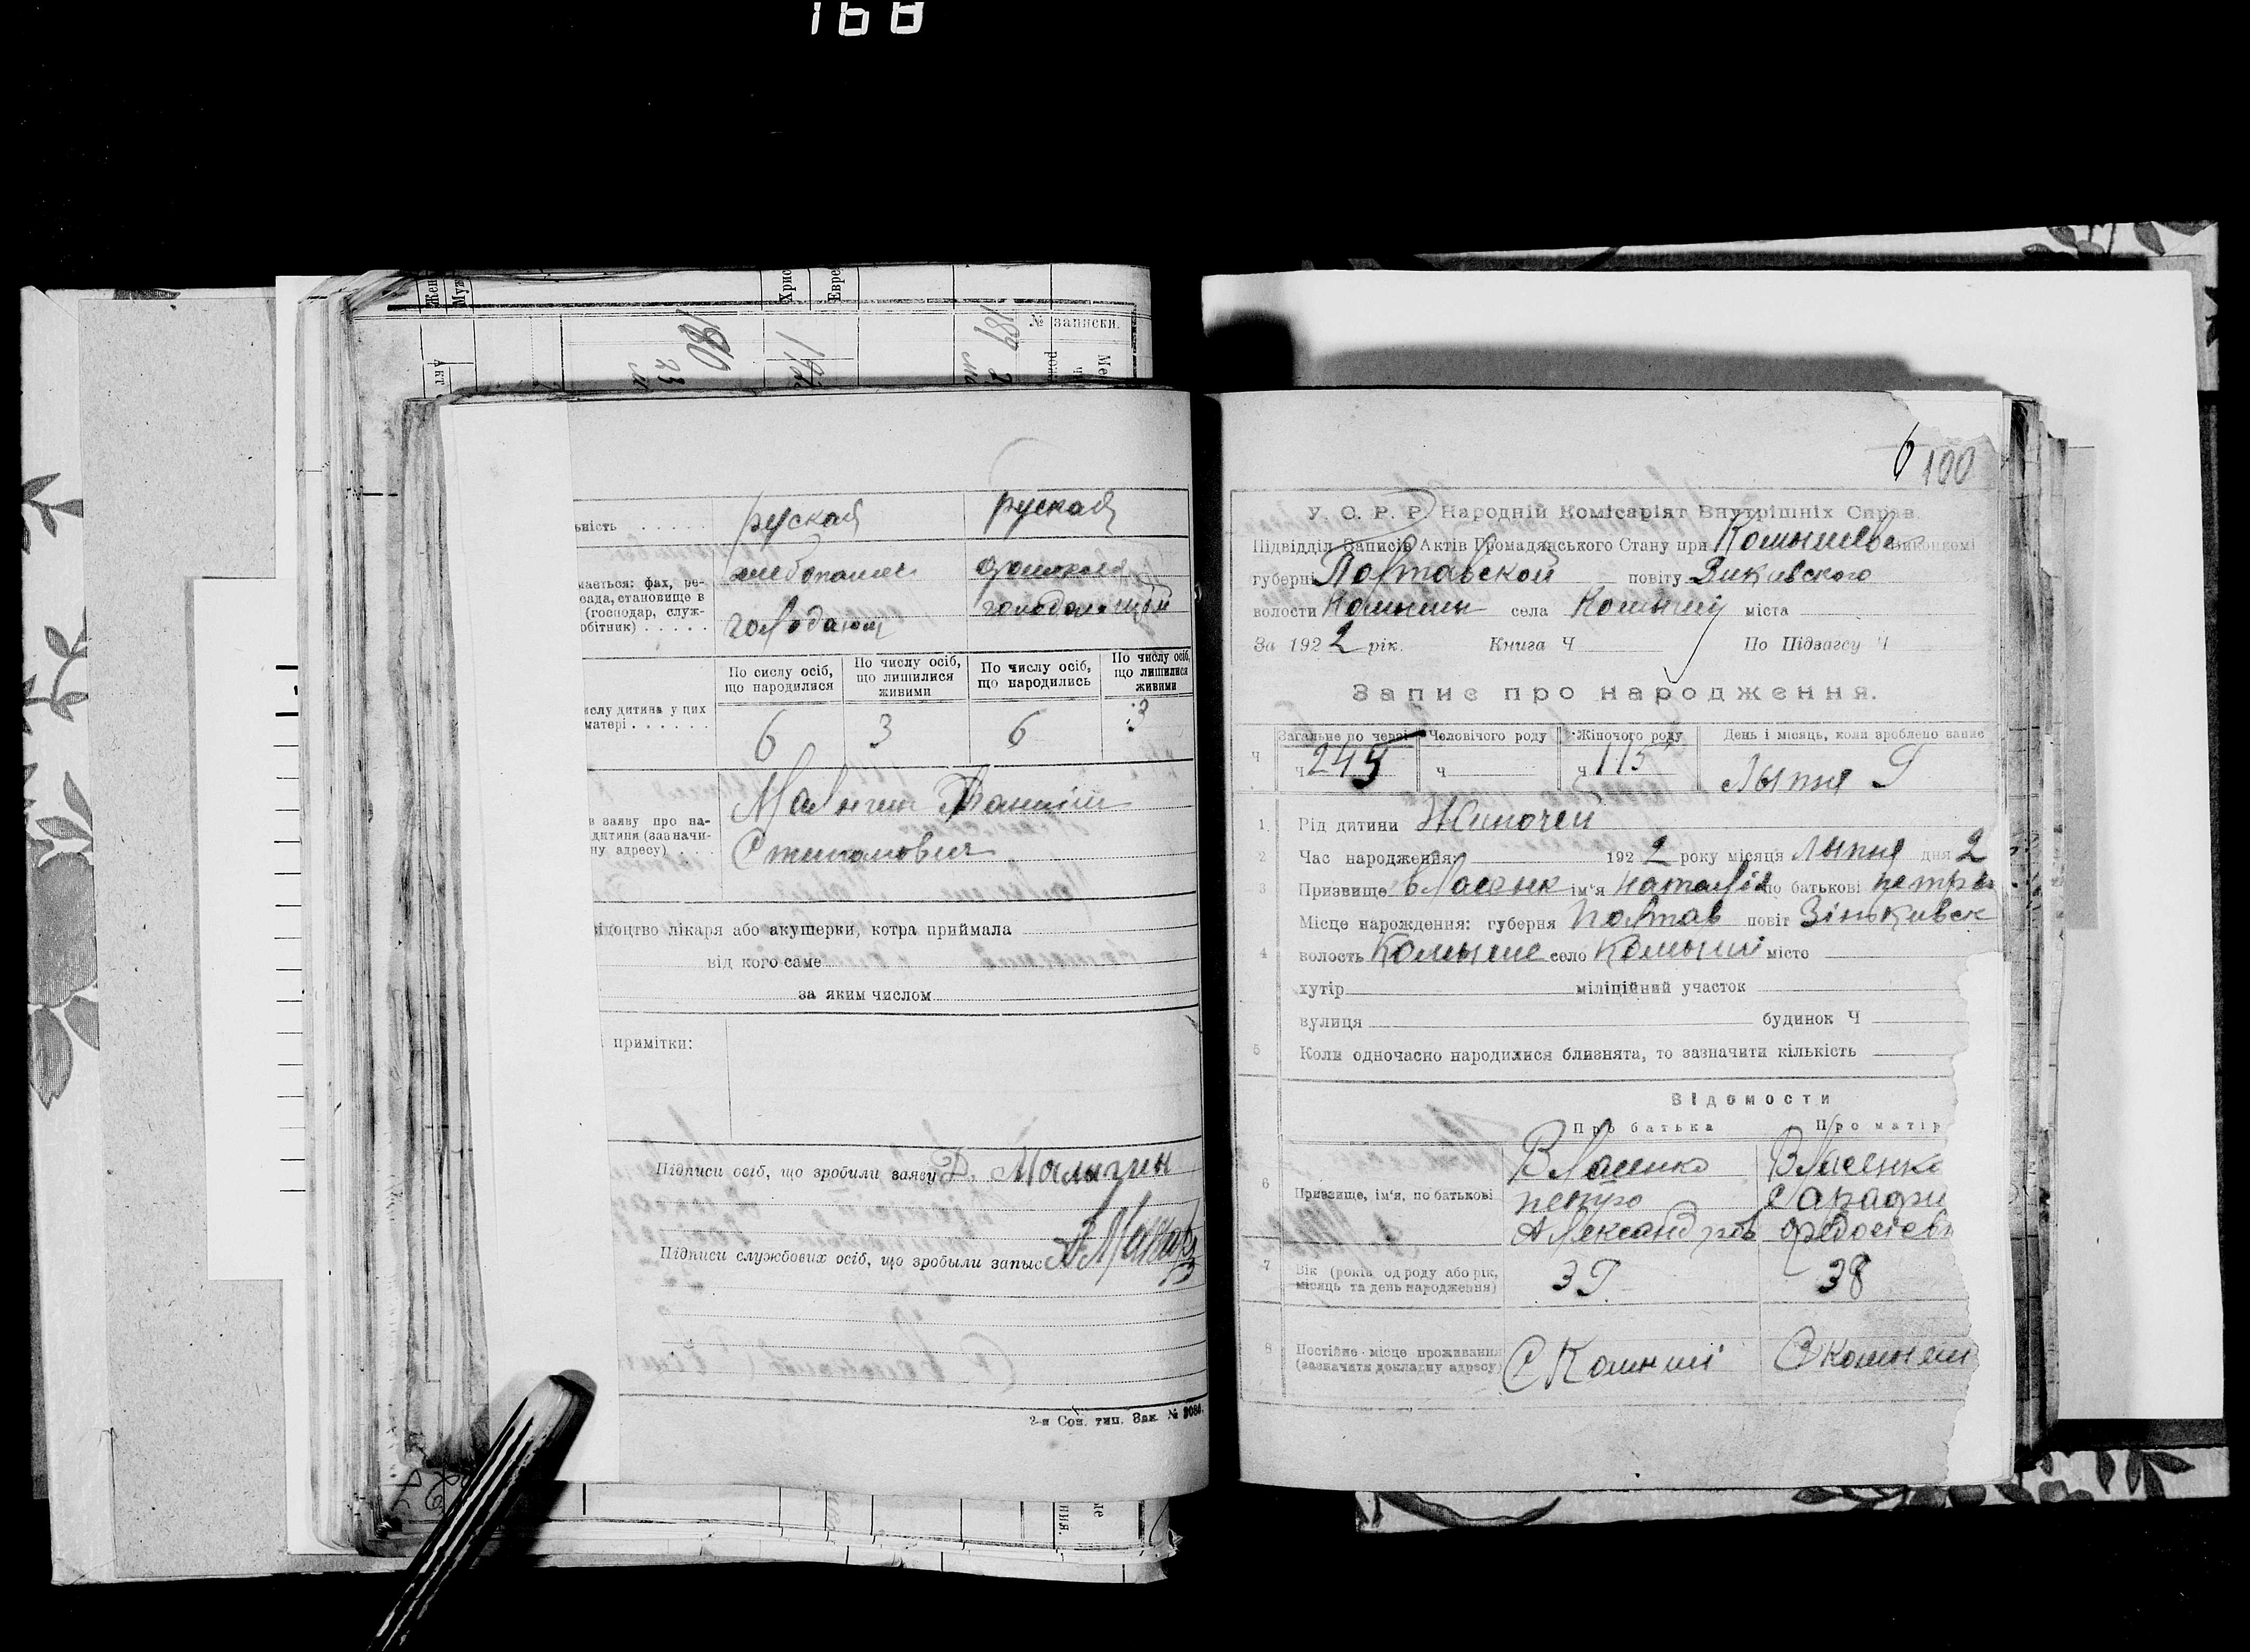 168
Жен
Муж
Хрис
Евре
№ записки.
189
180
ьність
руская
руская
мається: фах, ре-
сада, становище в
(господар, служ-
обітник)
хлебопашес
голодающ
голодающой
По сислу осіб,
що народилися
По числу осіб,
що лишилися
живими
По числу осіб,
що народились
По числу осіб,
що лишилися
живими
ислу дитина у цих
матері
6
3
6
3
в заяву про на-
дитини (зазначи-
ну адресу)
Степанович
ідоцтво лікаря або акушерки, котра приймала
від кого саме
за яким числом
примітки:
Підписи осіб, що зробили заяву Д. Малызин
Підписи службових осіб, що зробыли запыс
2-я Сов. тип. Зак. № 2084.
100
У. С. Р. Р. Народній Комісаріят Внутрішніх Справ.
Підвідділ Записів Актів Громадянського Стану при Комышев Виконкомі
губерні Полтавской повіту Зикивского
волости Комыши села Комыши міста
За 1922 рік. Книга Ч По Підзагсу Ч
Запис про народження.
Загальне по черзі
Человічого роду
Жіночого роду
День і місяць, коли зроблено запис
ч 245
ч
ч 115
Лыпня
1 Рід дитини Жиночей
2 Час народження: 1922 року місяця Лыпня дня 2
3 Призвище Власенк ім'я Наталія по батькові петров
Місце нарождення: губерня Полтав повіт Зінькивск
4 волость Комыше село Комыши місто
хутір міліційний участок
вулиця будинок Ч
5 Коли одночасно народилися близнята, то зазначити кількість
Відомости
Про батька
Про матір
6 Призвище, ім'я, по батькові
Власенко
петро
Александров
Власенко
Сарафи
федосієв
7 Вік (років од роду або рік,
місяць та день народження)
38
8 Постійне місце проживання
(зазначити докладну адресу)
С Комиші
С Комыши